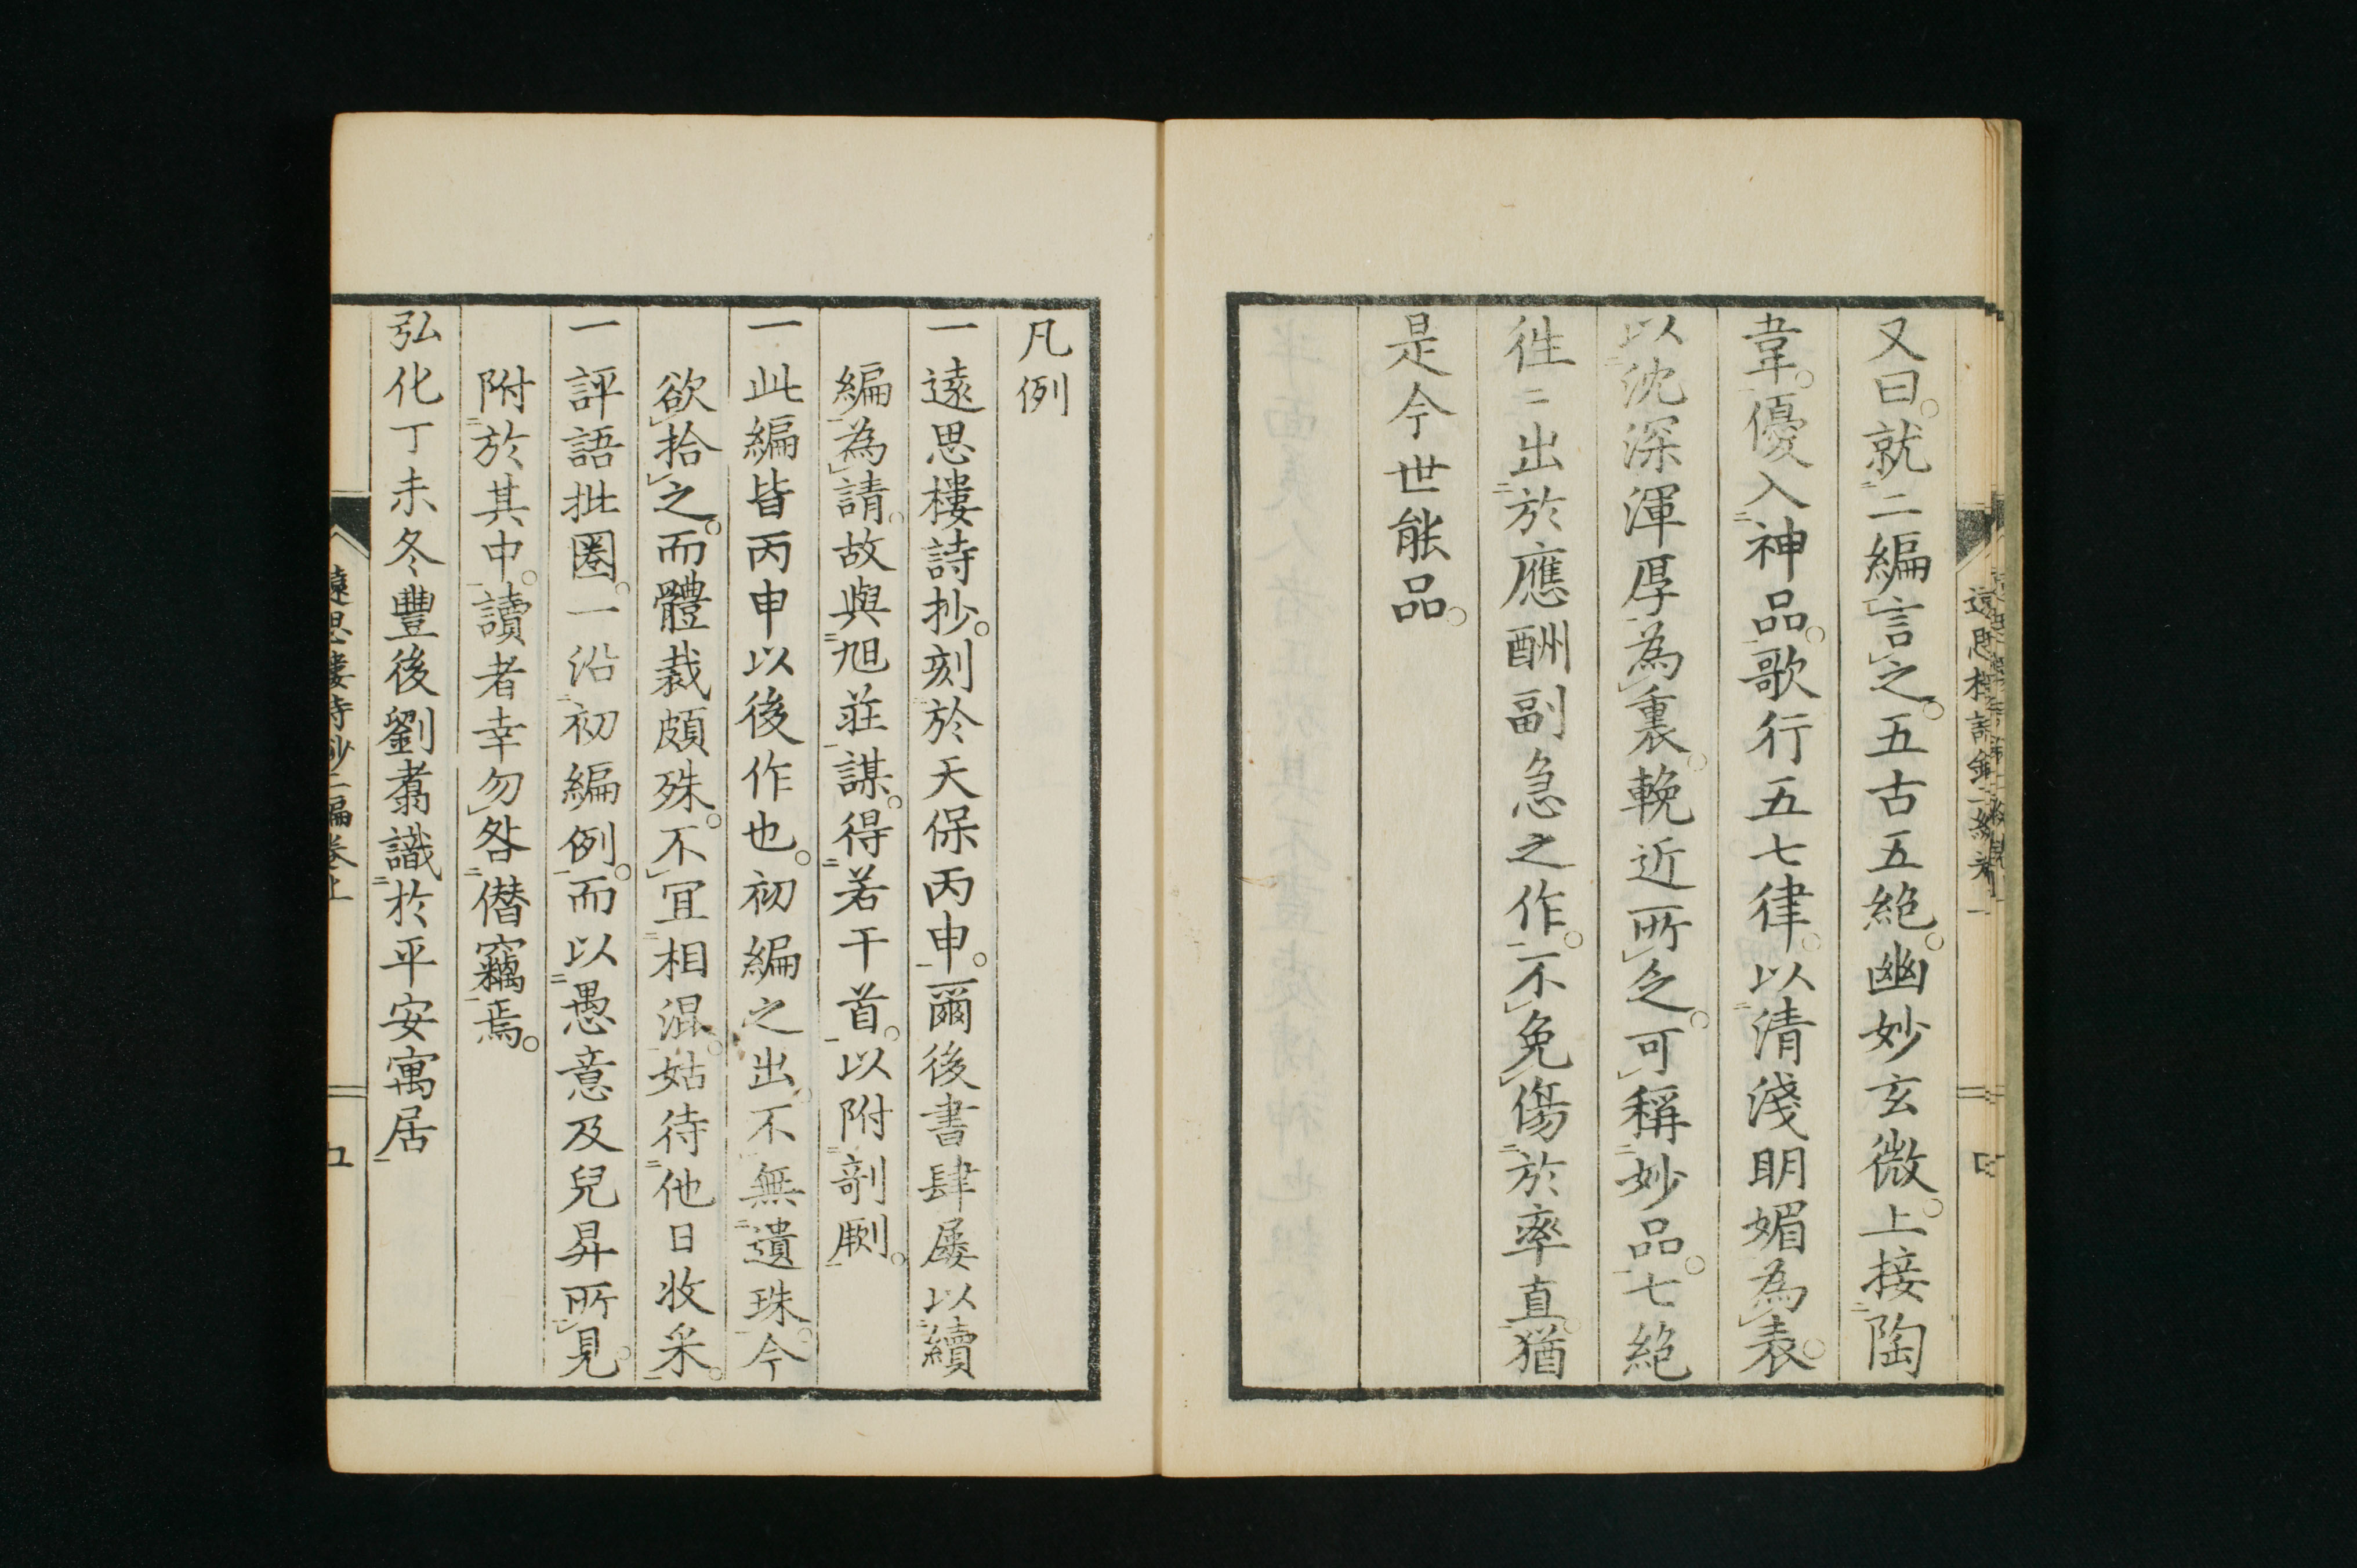 又曰。就二編言之。五古五絶。幽妙玄微。上接陶
韋。優入神品。歌行五七律。以清淺明媚為表。
以沈深渾厚為裏。輓近所乏。可稱妙品。七絶
徃〻出於應酬副急之作。不免傷於率直。猶
是今世能品。
凡例
一遠思樓詩抄。刻於天保丙申。爾後書肆屡以續
編為請。故與旭荘謀。得若干首。以附剞劂。
一此編皆丙申以後作也。初編之出。不無遺珠。今
欲拾之。而體裁頗殊。不宜相混。姑待他日收采。
一評語批圈。一沿初編例。而以愚意及兒昇所見。
附於其中。讀者幸勿咎僭竊焉。
弘化丁未冬豐後劉翥識於平安寓居
遠思樓詩鈔二編卷上